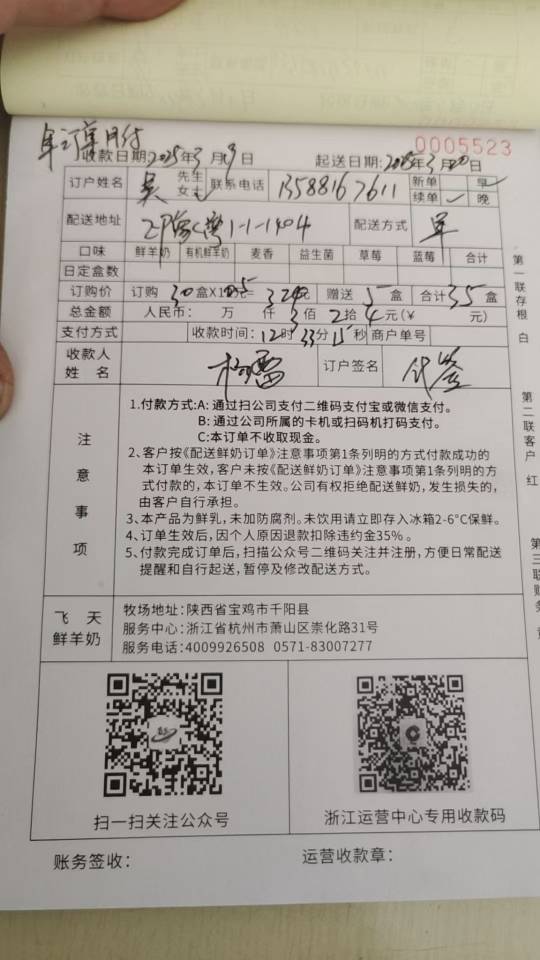 年订单月付
0005523
收款日期:2025年3月19日 起送日期:2025年3月20日
订户姓名 吴 先生 女士 联系电话 13588167611 新单 早 续单 晚
配送地址 1-1-1904 配送方式
口味 鲜羊奶 有机鲜羊奶 麦香 益生菌 草莓 蓝莓 合计
日定盒数
订购价 订购 30盒X10.5元=324元 赠送 5盒 合计35盒
总金额 人民币: 万 仟 3佰 2拾 4元(¥ 元)
支付方式 收款时间:12时33分15秒 商户单号
收款人姓名 杨雷 订户签名 代签
注意事项
1.付款方式:A: 通过扫公司支付二维码支付宝或微信支付。
B: 通过公司所属的卡机或扫码机打码支付。
C:本订单不收取现金。
2、客户按《配送鲜奶订单》注意事项第1条列明的方式付款成功的
本订单生效,客户未按《配送鲜奶订单》注意事项第1条列明的方
式付款的,本订单不生效。公司有权拒绝配送鲜奶,发生损失的,
由客户自行承担。
3、本产品为鲜乳,未加防腐剂。未饮用请立即存入冰箱2-6°C保鲜。
4、订单生效后,因个人原因退款扣除违约金35%。
5、付款完成订单后,扫描公众号二维码关注并注册,方便日常配送
提醒和自行起送,暂停及修改配送方式。
飞天
鲜羊奶
牧场地址:陕西省宝鸡市千阳县
服务中心:浙江省杭州市萧山区崇化路31号
服务电话:4009926508 0571-83007277
扫一扫关注公众号 浙江运营中心专用收款码
账务签收: 运营收款章:
第一联存根 白
第二联客户 红
第三联财务